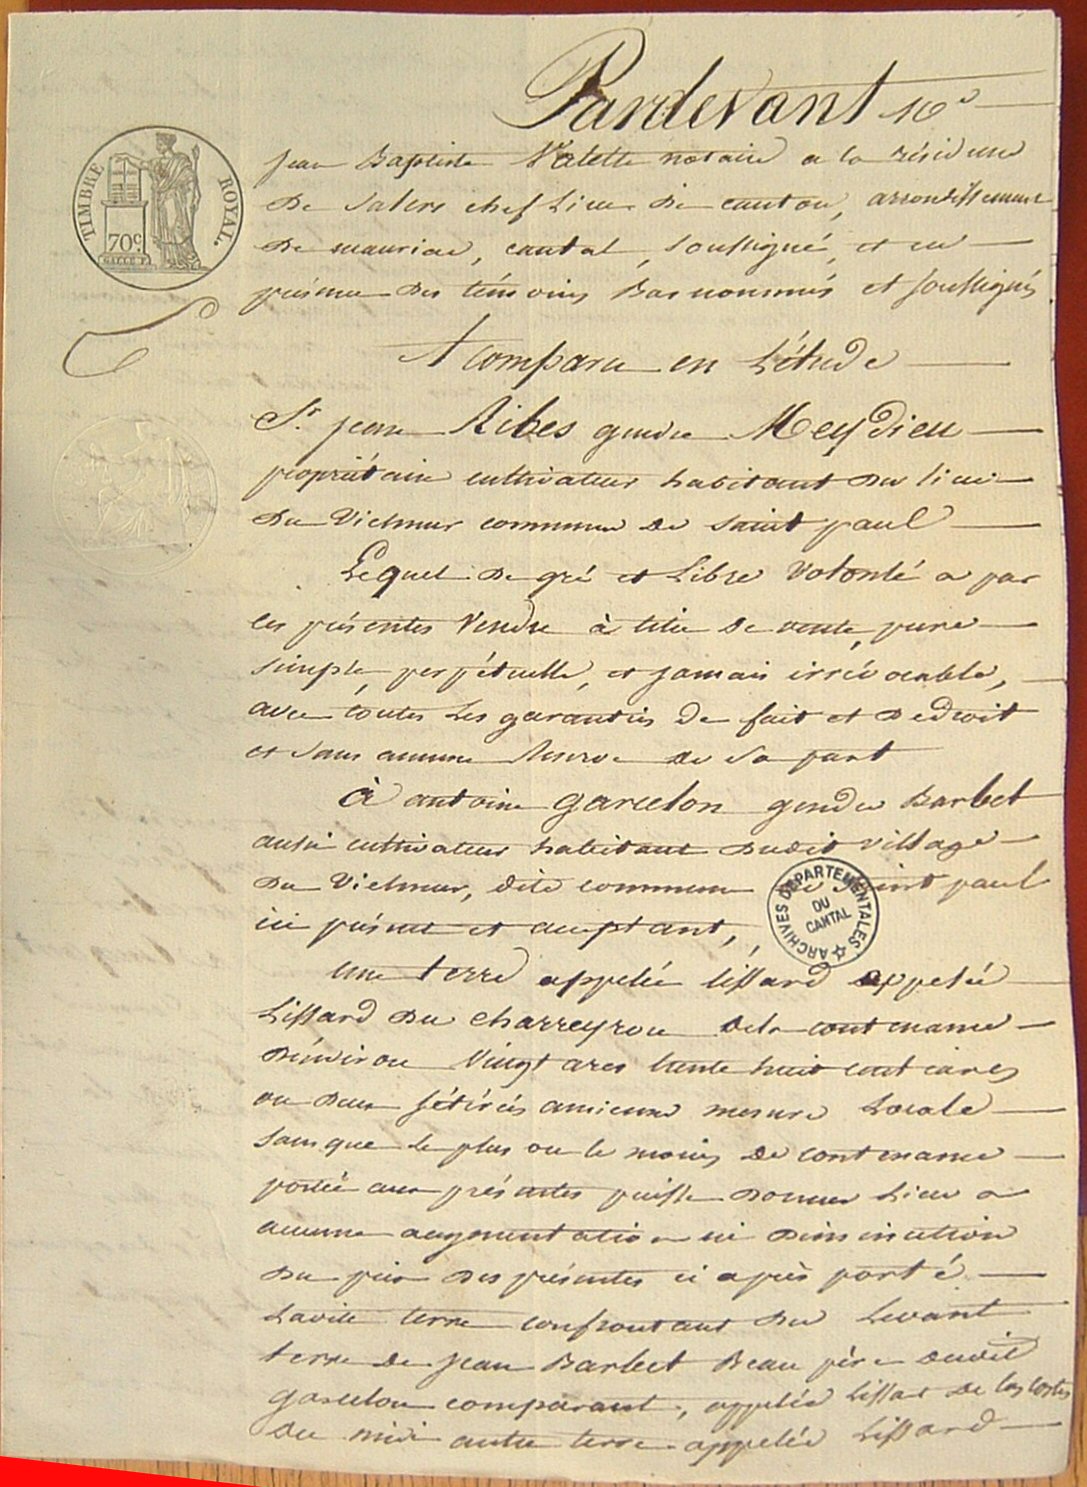 Pardevant Me
TIMBRE ROYAL.
70c
jean Baptiste Valette notaire a la résidence
de Salers chef Lieu de canton, arrondissement
de mauriac, cantal, soussigné, et en
présence des témoins Bas nommés et soussignés
A comparu en L'étude
Sr. jean Ribes gendre Meydieu
propriétaire cultivateur habitant du lieu
du Vielmur commune de saint paul
Lequel de gré et Libre Volonté a par
ces présentes Vendu à titre de vente, pure
simple, perpétuelle, et jamais irrévocable,
avec toutes Les garanties de fait et de droit
et sans aucune Reserve de sa part
à antoine garcelon gendre Barbet
aussi cultivateur habitant dudit village
du Vielmur, dite commune de saint paul
ici présent et acceptant,
ARCHIVES DÉPARTEMENTALES
DU
CANTAL
une terre appelée lissard appelée
Lissard du charreyrou de la contenance
d'environ Vingt ares trente huit centiares
ou deux sétérées ancienne mesure Locale
sans que le plus ou le moins de contenance
portée aux présentes puisse donner Lieu a
aucune augmentation ni diminution
du prix des présentes ci après porté
Ladite terre confrontant du Levant
terre de jean Barbet Beau père dudit
garcelon comparant, appelée Lissard de las costes
du midi autre terre appelée Lissard